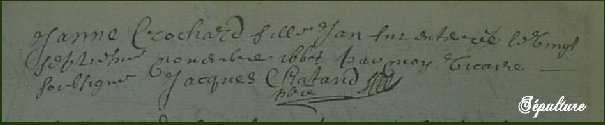 Janne Crochard fille Jan fut enterrée le Vingt
septiesme novembre 1667 par moy vicaire
soubsigné Jacques Chatand
pbre
Sépulture